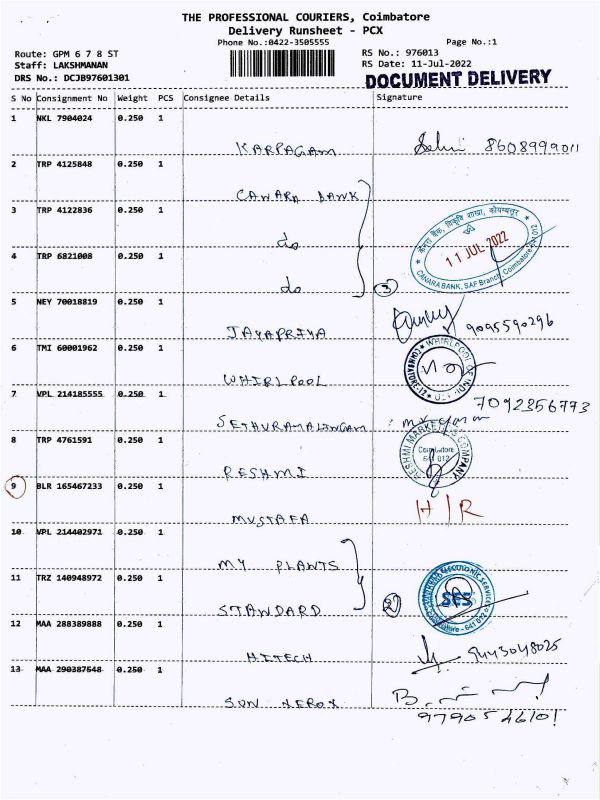 THE PROFESSIONAL COURIERS, Coimbatore
Delivery Runsheet - PCX
Phone No.:0422-3505555 Page No.:1
Route: GPM 6 7 8 ST RS No.: 976013
Staff: LAKSHMANAN RS Date: 11-Jul-2022
DRS No.: DCJB97601301 DOCUMENT DELIVERY
S No Consignment No Weight PCS Consignee Details Signature
1 NKL 7904024 0.250 1
KARPAGAM 8608999011
2 TRP 4125848 0.250 1
CANARA BANK
3 TRP 4122836 0.250 1
do
केनरा बैंक, विकृति शाखा, कोयम्बत्तूर
11 JUL 2022
CANARA BANK, SAF Branch, Coimbatore
4 TRP 6821008 0.250 1
do 3
5 NEY 70018819 0.250 1
JAYAPRIYA 9095590296
6 TMI 60001962 0.250 1
WHIRLPOOL
WHIRLPOOL OF INDIA
7 VPL 214185555 0.250 1
7092356773
SETHURAMALINGAM
8 TRP 4761591 0.250 1
RESHMI MARKETING COMPANY
Coimbatore
641 012
RESHMI
9 BLR 165467233 0.250 1
H/R
MUSTAFA
10 VPL 214402971 0.250 1
MY PLANTS
11 TRZ 140948972 0.250 1
STANDARD 2
SFS
12 MAA 288389888 0.250 1
HITECH 9443048025
13 MAA 290387548 0.250 1
SUN XEROX
9790546101